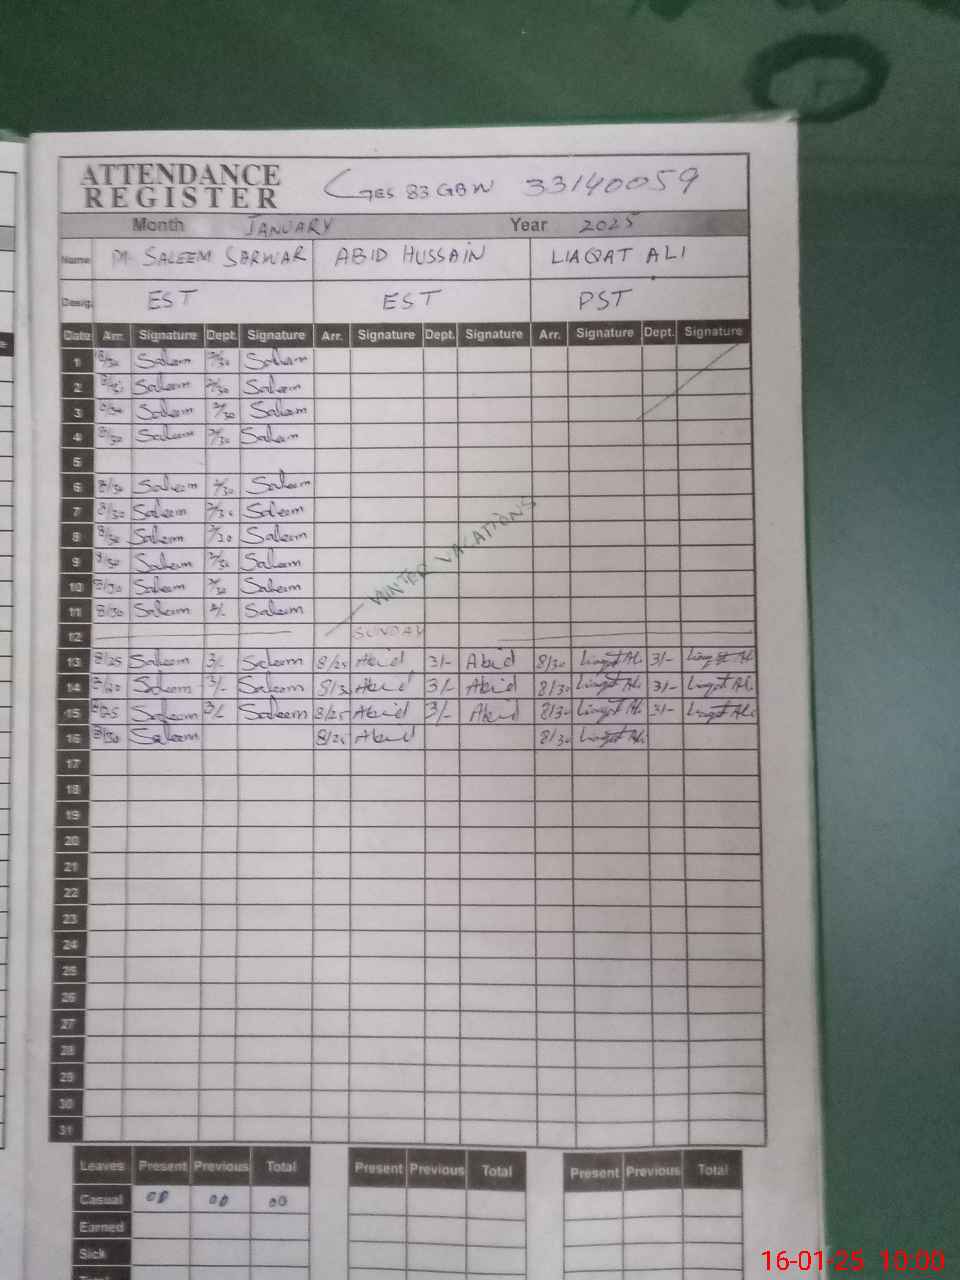 ATTENDANCE REGISTER GES 83 GBW 33140059
Month JANUARY Year 2025
Name M. SALEEM SARWAR ABID HUSSAIN LIAQAT ALI
Desig. EST EST PST
Date Arr. Signature Dept. Signature Arr. Signature Dept. Signature Arr. Signature Dept. Signature
1 8/30 Saleem 2/30 Saleem
2 Saleem 2/30 Saleem
3 8/30 Saleem 2/30 Saleem
4 8/30 Saleem 2/30 Saleem
5
6 8/30 Saleem 2/30 Saleem
7 8/30 Saleem 2/30 Saleem
8 8/30 Saleem 2/30 Saleem
9 8/30 Saleem 2/30 Saleem
10 8/30 Saleem 2/30 Saleem
WINTER VACATIONS
11 8/30 Saleem 2/- Saleem
12 SUNDAY
13 8/25 Saleem 3/- Saleem 8/25 Abid 3/- Abid 8/30 Liaqat Ali 3/- Liaqat Ali
14 8/20 Saleem 3/- Saleem 8/30 Abid 3/- Abid 8/30 Liaqat Ali 3/- Liaqat Ali
15 8/25 Saleem 3/- Saleem 8/25 Abid 3/- Abid 8/30 Liaqat Ali 3/- Liaqat Ali
16 8/30 Saleem 8/25 Abid 8/30 Liaqat Ali
17
18
19
20
21
22
23
24
25
26
27
28
29
30
31
Leaves Present Previous Total Present Previous Total Present Previous Total
Casual 00 00 00
Earned
Sick
16-01-25 10:00